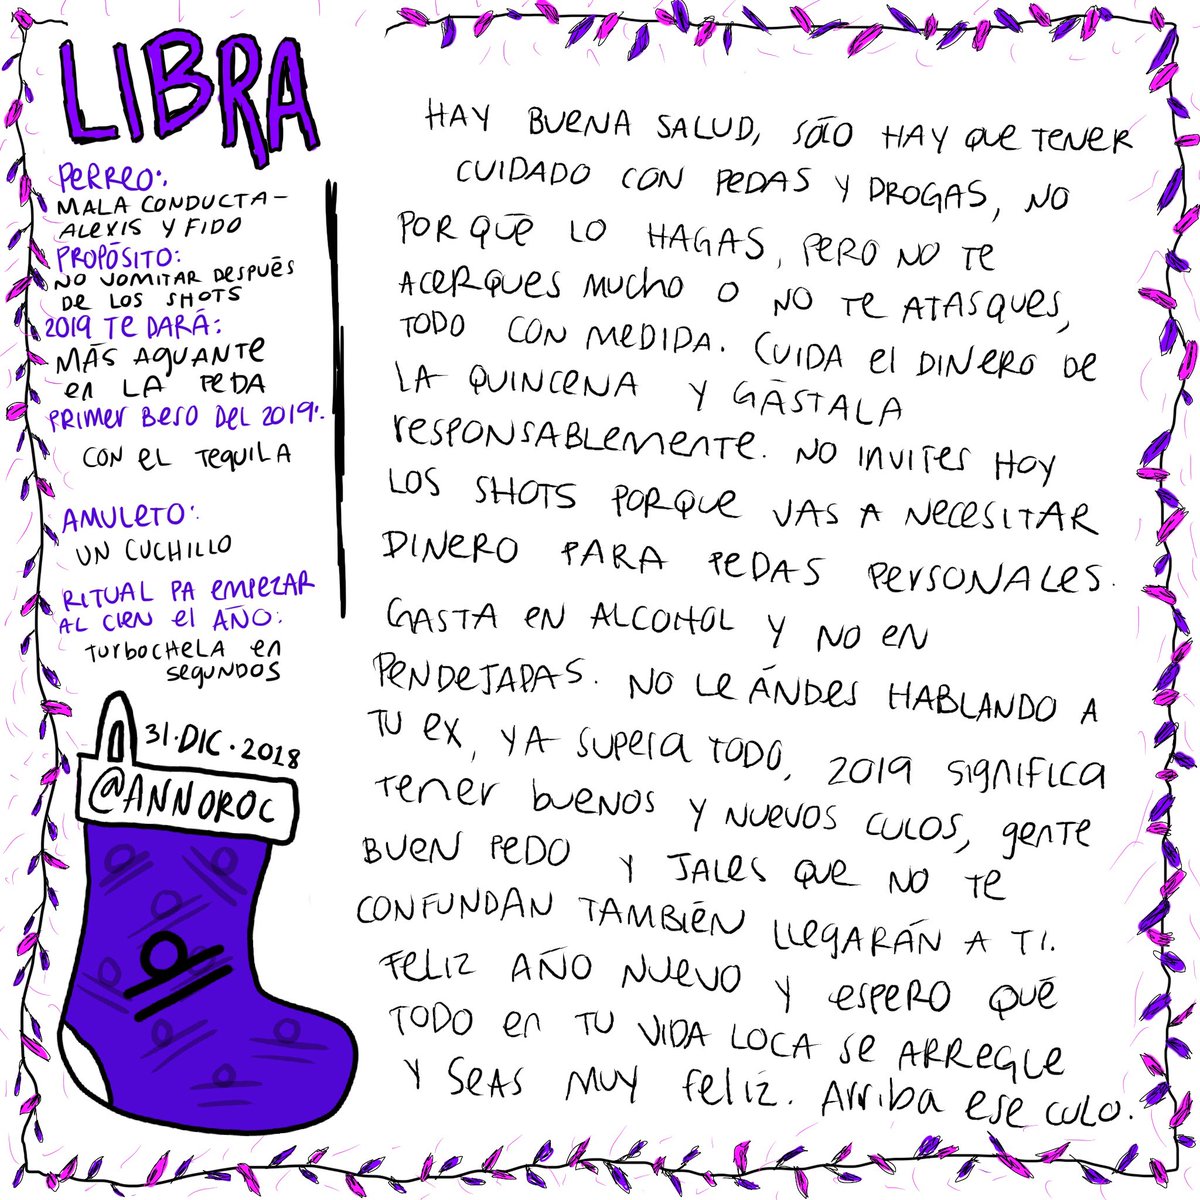 LIBRA
PERREO:
MALA CONDUCTA -
ALEXIS Y FIDO
PROPÓSITO:
NO VOMITAR DESPUÉS
DE LOS SHOTS
2019 TE DARÁ:
MÁS AGUANTE
EN LA PEDA
PRIMER BESO DEL 2019:
CON EL TEQUILA
AMULETO:
UN CUCHILLO
RITUAL PA EMPEZAR
AL CIEN EL AÑO:
TURBOCHELA EN
SEGUNDOS
31.DIC.2018
@ANNOROC
HAY BUENA SALUD, SÓLO HAY QUE TENER
CUIDADO CON PEDAS Y DROGAS, NO
PORQUÉ LO HAGAS, PERO NO TE
ACERQUES MUCHO O NO TE ATASQUES,
TODO CON MEDIDA. CUIDA EL DINERO DE
LA QUINCENA Y GÁSTALA
RESPONSABLEMENTE. NO INVITES HOY
LOS SHOTS PORQUE VAS A NECESITAR
DINERO PARA PEDAS PERSONALES.
GASTA EN ALCOHOL Y NO EN
PENDEJADAS. NO LE ÁNDES HABLANDO A
TU EX, YA SUPERA TODO, 2019 SIGNIFICA
TENER BUENOS Y NUEVOS CULOS, GENTE
BUEN PEDO Y JALES QUE NO TE
CONFUNDAN TAMBIÉN LLEGARÁN A TI.
FELIZ AÑO NUEVO Y ESPERO QUÉ
TODO EN TU VIDA LOCA SE ARREGLE
Y SEAS MUY FELIZ. ARRIBA ESE CULO.